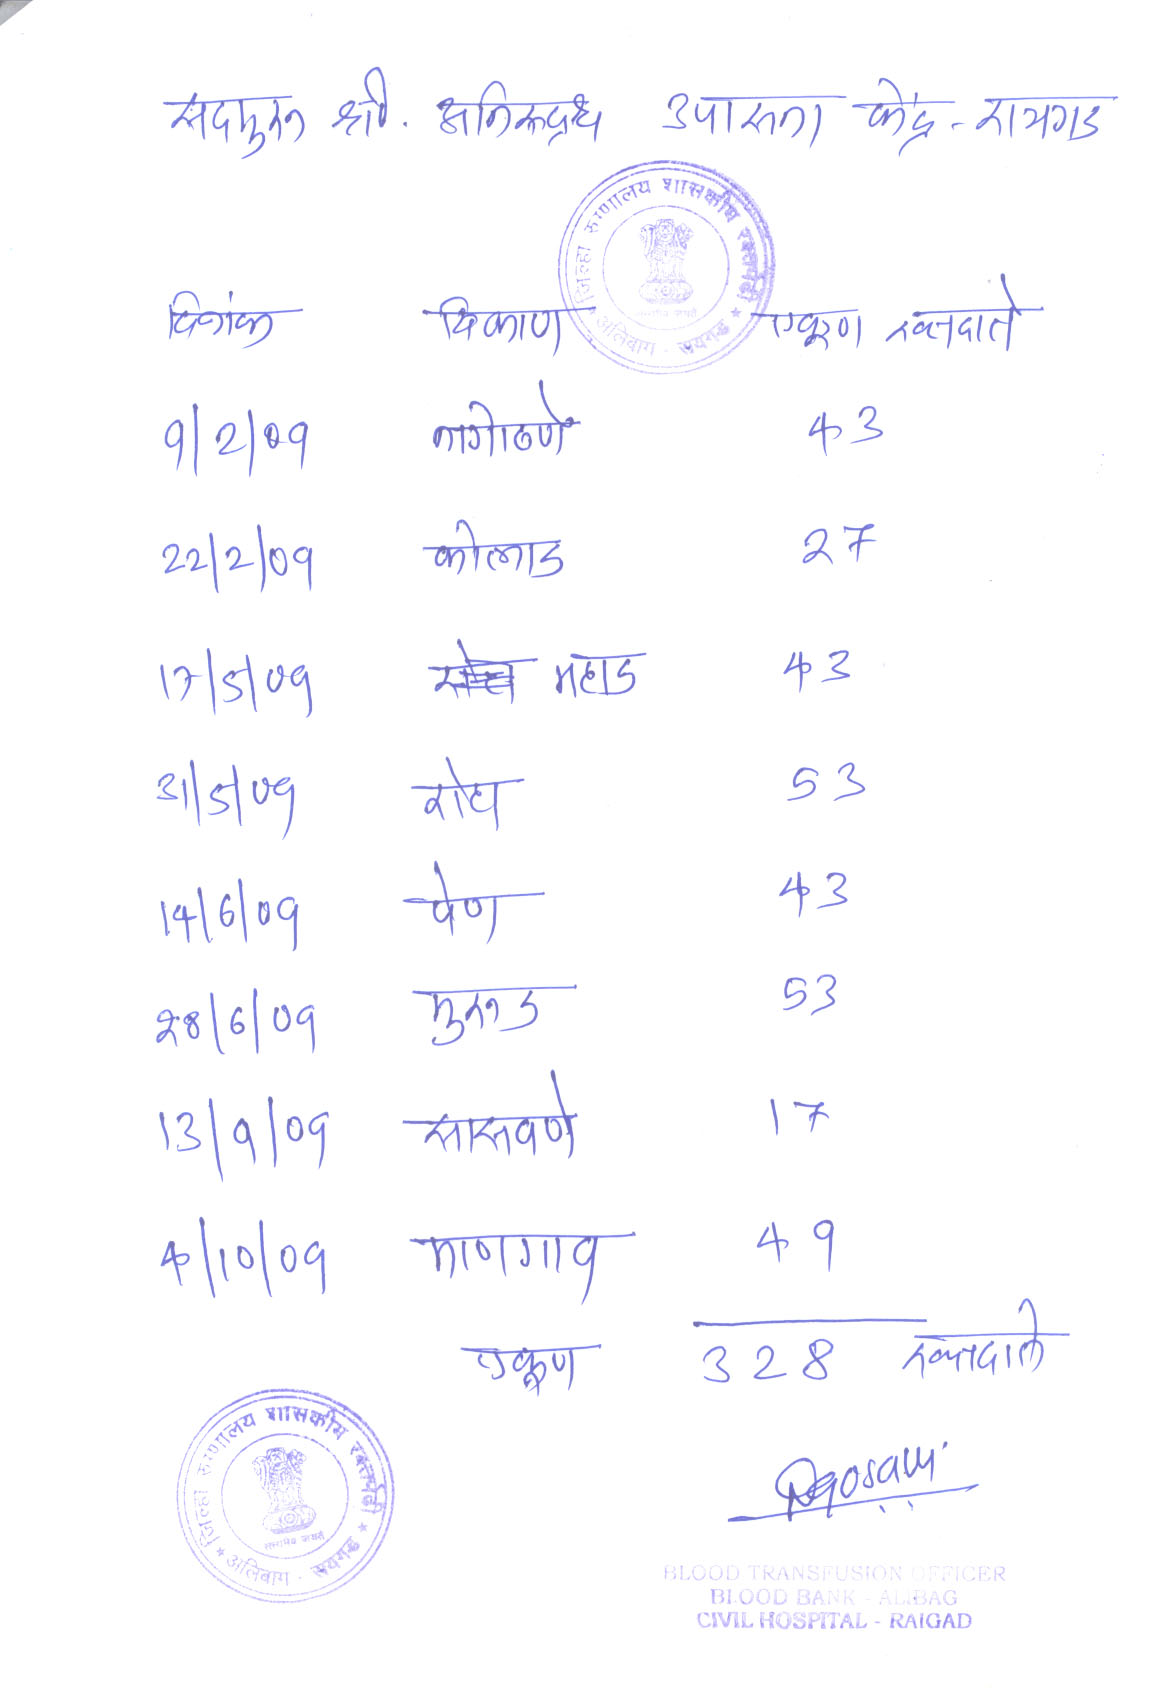 सदगुरू श्री. अनिरूद्ध उपासना केंद्र - रायगड
जिल्हा रुग्णालय शासकीय रक्तपेढी
★ अलिबाग - रायगड ★
दिनांक ठिकाण एकूण रक्तदाते
9/2/09 नागोठणे 43
22/2/09 कोलाड 27
17/5/09 महाड 43
31/5/09 रोहा 53
14/6/09 पेण 43
28/6/09 मुरूड 53
13/9/09 सासवणे 17
4/10/09 माणगाव 49
एकूण 328 रक्तदाते
जिल्हा रुग्णालय शासकीय रक्तपेढी
सत्यमेव जयते
★ अलिबाग - रायगड ★
BLOOD TRANSFUSION OFFICER
BLOOD BANK - ALIBAG
CIVIL HOSPITAL - RAIGAD